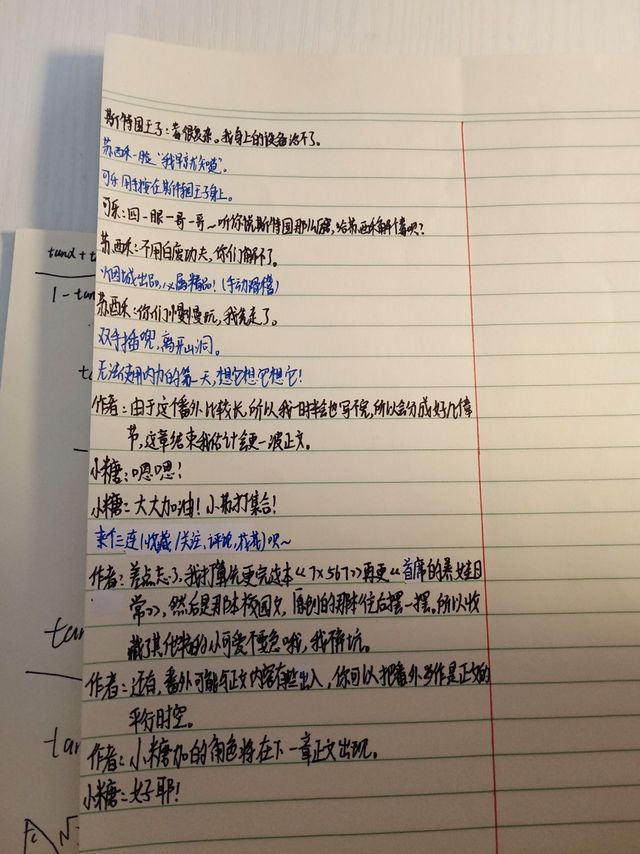 斯特国王子：看很复杂。我身上的设备治不了。
苏西禾一脸"我早就知道"。
可乐用手按在斯特国王子身上。
可乐：四一眼一哥一哥～听你说斯特国那么,给苏西禾解个毒呗？
苏西禾：不用白废功夫,你们解不了。
出品,属精品！(手动滑稽)
苏西禾：你们慢慢玩,我先走了。
双手插兜,离开山洞。
无法使用内力的第一天,想它想它想它！
作者：由于这个番外比较长,所以我一时半会也写不完,所以会分成好几个章
节,这章结束我估计会更一波正文。
小糖：嗯嗯！
小糖：大大加油！小苏打集合！
来个三连(收藏/关注、评论、花花)呗～
作者：差点忘了,我打算先更完这本《7×567》再更《首席的暴娃日
常》,然后是那本校园文,原创的那本往后摆一摆。所以收
藏了其他的小可爱不要急哦,我不弃坑。
作者：还有,番外可能与正文内容有些出入,你可以把番外当作是正文的
平行时空。
作者：小糖加的角色将在下一章正文出现。
小糖：好耶！
tand + t
1 - tan
ta
tan
tan